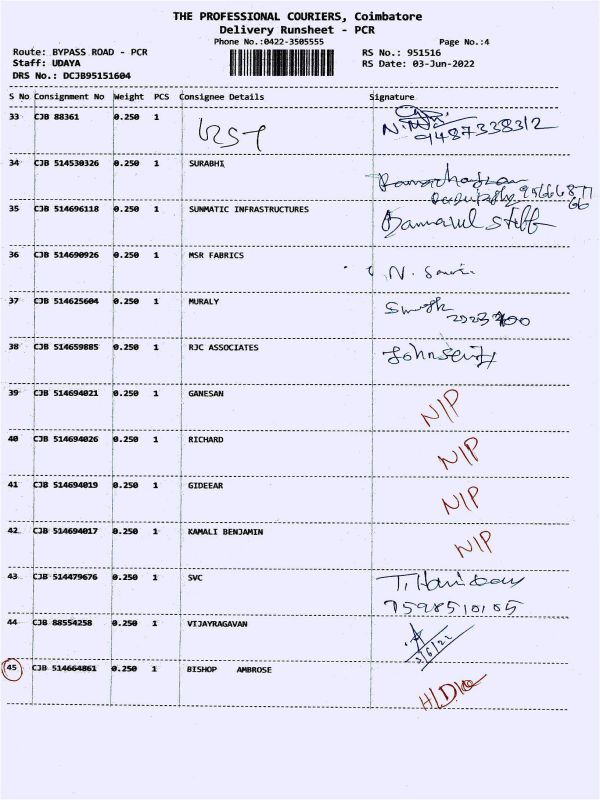 THE PROFESSIONAL COURIERS, Coimbatore
Delivery Runsheet - PCR
Phone No.:0422-3505555 Page No.:4
Route: BYPASS ROAD - PCR RS No.: 951516
Staff: UDAYA RS Date: 03-Jun-2022
DRS No.: DCJB95151604
S No Consignment No Weight PCS Consignee Details Signature
33 CJB 88361 0.250 1
9487338312
34 CJB 514530326 0.250 1 SURABHI
35 CJB 514696118 0.250 1 SUNMATIC INFRASTRUCTURES
36 CJB 514690926 0.250 1 MSR FABRICS N.
37 CJB 514625604 0.250 1 MURALY
38 CJB 514659885 0.250 1 RJC ASSOCIATES
39 CJB 514694021 0.250 1 GANESAN N/P
40 CJB 514694026 0.250 1 RICHARD N/P
41 CJB 514694019 0.250 1 GIDEEAR N/P
42 CJB 514694017 0.250 1 KAMALI BENJAMIN N/P
43 CJB 514479676 0.250 1 SVC
7598510105
44 CJB 88554258 0.250 1 VIJAYRAGAVAN
3/6/22
45 CJB 514664861 0.250 1 BISHOP AMBROSE